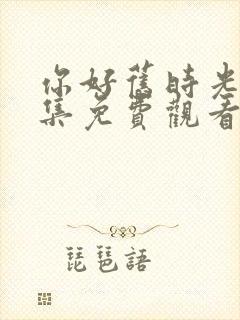 你好舊時光
集免費觀看
琵琶語